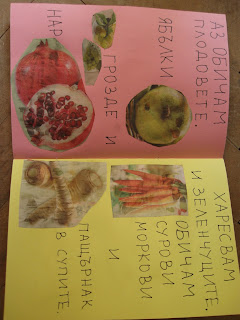 АЗ ОБИЧАМ
ПЛОДОВЕТЕ.
ЯБЪЛКИ
ГРОЗДЕ И
НАР
ХАРЕСВАМ
И ЗЕЛЕНЧУЦИТЕ.
ОБИЧАМ
СУРОВИ
МОРКОВИ
И
ПАЩЪРНАК
В СУПИТЕ.